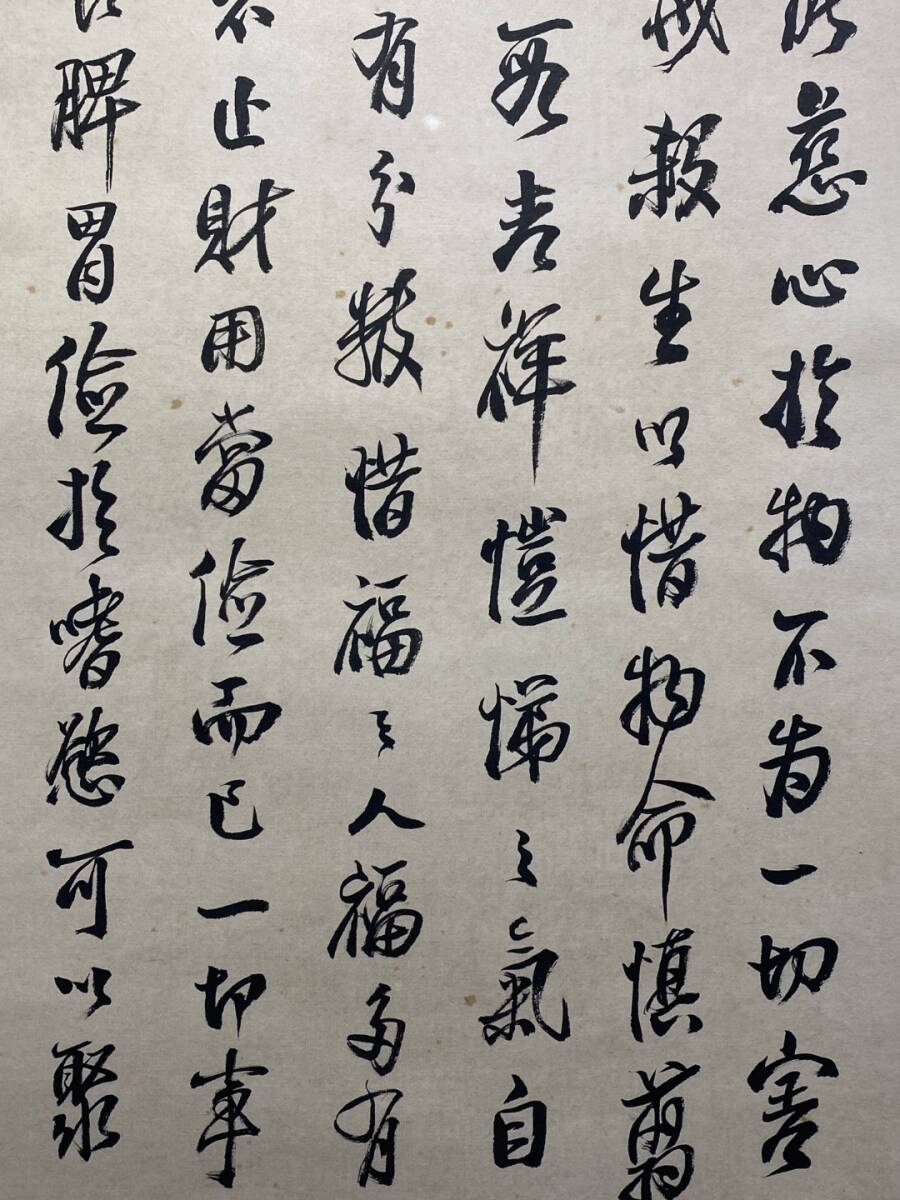 能慈心於物不為一切害
戒殺生以惜物命慎翦
段吉祥愷悌之氣自
有分數惜福之人福多有
不止財用當儉而已一切事
脾胃儉於嗜慾可以聚